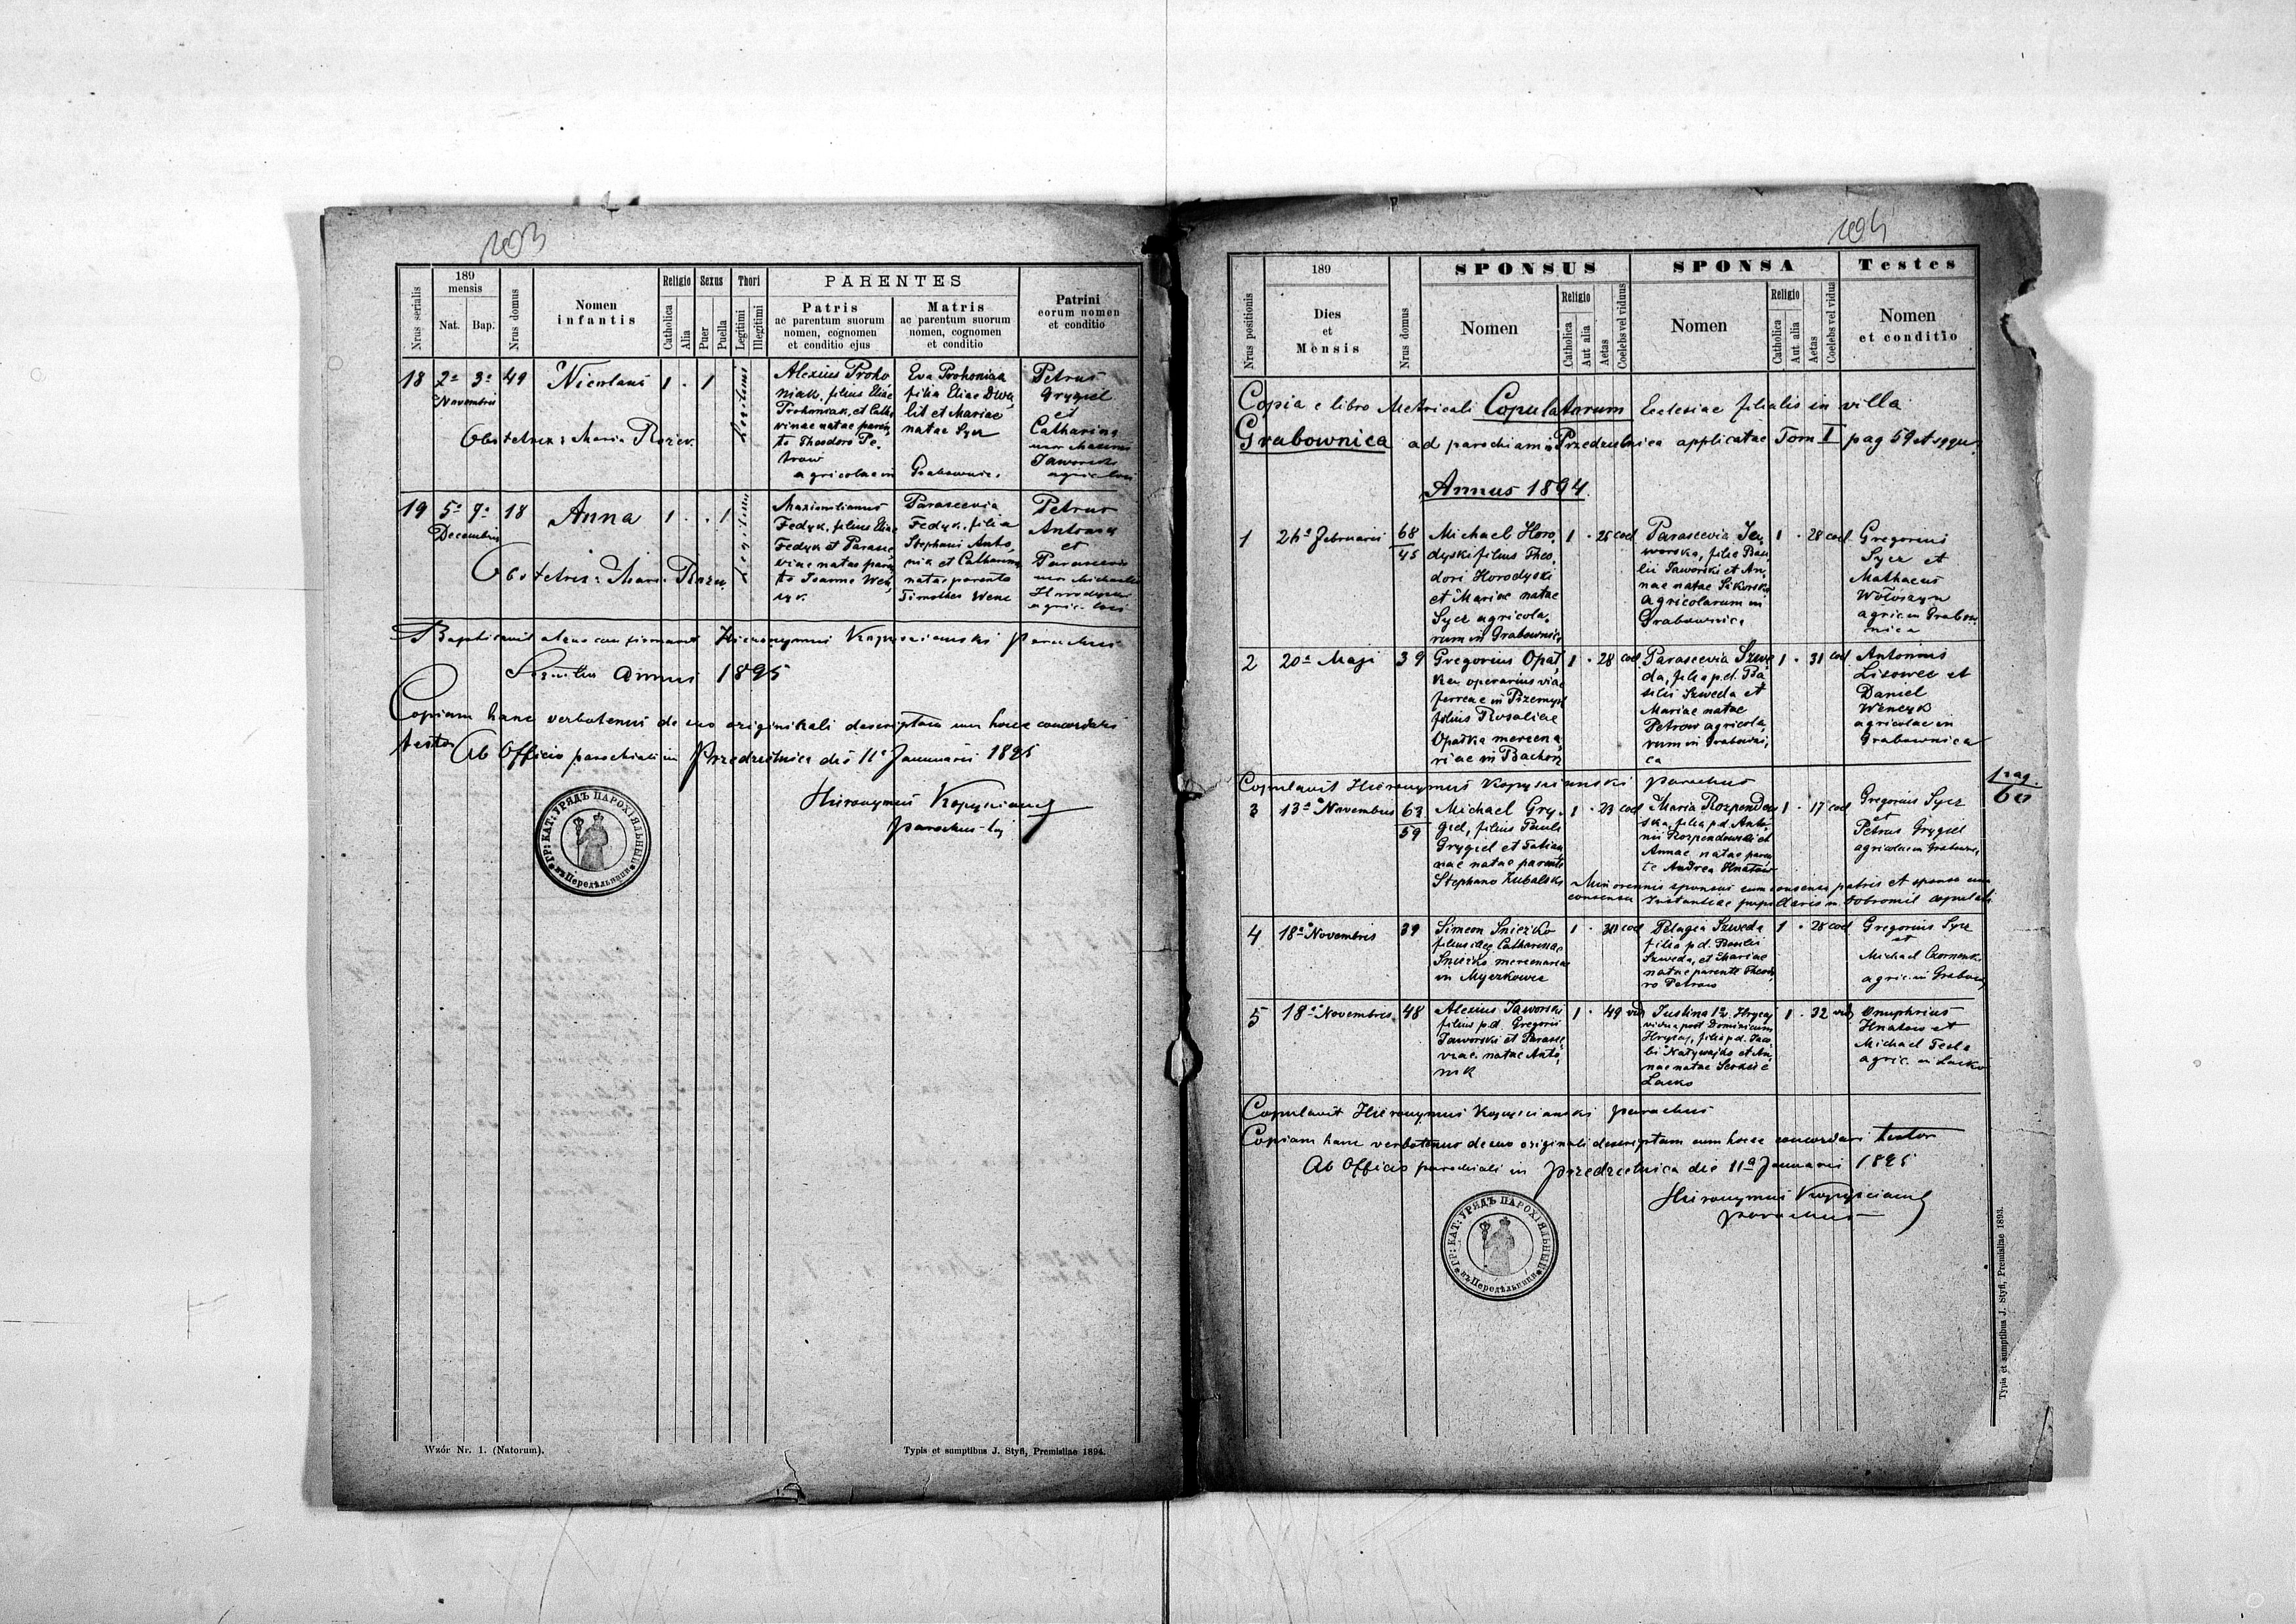 103
Nrus serialis
189
mensis
Nat.
Bap.
Nrus domus
Nomen
infantis
Religio
Catholica
Alia
Sexus
Puer
Puella
Thori
Legitimi
Illegitimi
PARENTES
Patris
ac parentum suorum
nomen, cognomen
et conditio ejus
Matris
ac parentum suorum
nomen, cognomen
et conditio
Patrini
eorum nomen
et conditio
18
2a 3a
Novembris
49
Nicolaus
1 . 1
Obstetrix: Maria
Alexius Proho
niak, filius Eliae
Prohoniak, et Catha
rinae natae paren,
te Theodoro Pe,
trow
agricolae in
Eva Prohoniak
filia Eliae
lit et Mariae
natae Sycz
Petrus
Grygiel
et
Catharina
uxor
Jaworski
19
5a 7a
Decembris
18
Anna
1 . . 1
Obstetrix: Maria
Maximilianus
Fedyk, filius Eliae
Fedyk et Parasce,
viae natae paren
te Joanne Wen,
czyk
Parascevia
Fedyk, filia
Stephani Anto,
niak et Catharinae
natae parente
Timotheo
Petrus
et
Parascevia
uxor Michaelis
Horodyski
Baptisavit atque confirmavit Hieronymus Kopyscianski parochus
Sequitur Annus 1895
Copiam hanc verbotenus de suo originali descriptam cum hocce concordare
testor
Ab Officio parochiali in Przedzielnica die 11a Januarii 1895
Hieronymus Kopyscianski
parochus
ГР: КАТ: УРЯДЪ ПАРОХІЯЛЬНЫЙ
въ Передѣльници
Wzór Nr. 1. (Natorum).
Typis et sumptibus J. Styfi, Premisliae 1894.
104
Nrus positionis
189
Dies
et
Mensis
Nrus domus
SPONSUS
Nomen
Religio
Catholica
Aut alia
Aetas
Coelebs vel viduus
SPONSA
Nomen
Religio
Catholica
Aut alia
Aetas
Coelebs vel vidua
Testes
Nomen
et conditio
Copia e libro Metricali Copulatorum Ecclesiae filialis in villa
Grabownica ad parochiam Przedzielnica applicatae Tom I pag 59 et sequ.
Annus 1894.
1
26a Februarii
68
45
Michael Horo,
dyski filius Theo,
dori Horodyski
et Mariae natae
Sycz agricola,
rum in Grabownica
1 . 25 coel
Parascevia Ja,
worska, filia Basi
lii Jaworski et An,
nae natae Sikorska
agricolarum in
Grabownica
1 . 28 coel
Gregorius
Sycz et
Mathaeus
Wołoszyn
agric. in Grabow
nica
2
20a Maji
39
Gregorius Opał
ka operarius viae
ferreae in Przemysl
filius Rosaliae
Opałka mercena,
riae in Bachorz
1 . 28 coel
Parascevia Szwe
da, filia p.d. Ba
silii Szweda et
Mariae natae
Petrow agricola,
rum in Grabowni,
ca
1 . 31 coel
Antonius
Lisowec et
Daniel
Wenczyk
agricolae in
Grabownica
Copulavit Hieronymus Kopyscianski parochus
pag.
60
3
13a Novembris
63
59
Michael Gry,
giel, filius Pauli
Grygiel et Tatian
nae natae parente
Stephano Zubalski
1 . 23 coel
Maria Rozpendow
ska, filia p.d. Anto,
nii Rozpendowski et
Annae natae paren
te Andrea Hnatow
1 . 17 coel
Gregorius Sycz
et
Petrus Grygiel
agricolae in Grabownica
Minorennis sponsus cum consensu patris et sponsa cum
consensu Instantiae pupillaris in Dobromil copulati
4
18a Novembris
39
Simeon Snieżko
filius illeg. Catharinae
Snieżko mercenariae
in Myczkowce
1 . 30 coel
Pelagia Szweda
filia p.d. Basilii
Szweda, et Mariae
natae parente Theodo
ro Petrow
1 . 28 coel
Gregorius Sycz
et
Michael
agric. in Grabow
5
18a Novembris
48
Alexius Jaworski
filius p.d. Gregorii
Jaworski et Parasce
viae natae Anto,
nik
1 . 49 vid
Justina 1v. Hrycaj
vidua post Dominicum
Hrycaj, filia p.d. Jaco
bi Natywajko et An,
nae natae
Lacko
1 . 32 vid
Onuphrius
Hnatow et
Michael Tesla
agric. in Lacko
Copulavit Hieronymus Kopyscianski parochus
Copiam hanc verbotenus de suo originali descriptam cum hocce concordare testor
Ab Officio parochiali in Przedzielnica die 11a Januarii 1895
Hieronymus Kopyscianski
parochus
ГР: КАТ: УРЯДЪ ПАРОХІЯЛЬНЫЙ
въ Передѣльници
Typis et sumptibus J. Styfi, Premisliae 1893.